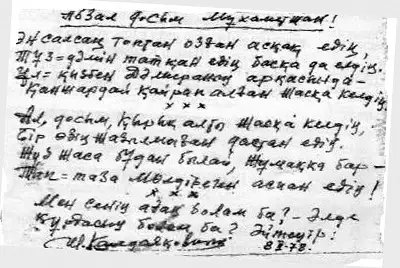 Абзал досым Мұхаметжан!
Ән салсаң топтан озған асқақ едің,
Тұз-дәмін татқан едің басқа да елдің.
Ұл-қызбен Дәмираның арқасында-
Қанжардай қайрап алған жасқа келдің.
x x x
Ал, досым, қырық алты жасқа келдің,
Бір өзің жазылмаған дастан едің.
Жүз жаса бұдан былай, жұмаққа бар-
Тап-таза мөлдіреген аспан едің!
x x x
Мен сенің ағаң болам ба? - Әлде
құрдасың болам ба? Әйтеуір!
Ш. Қалдаяқов
8 X-78.